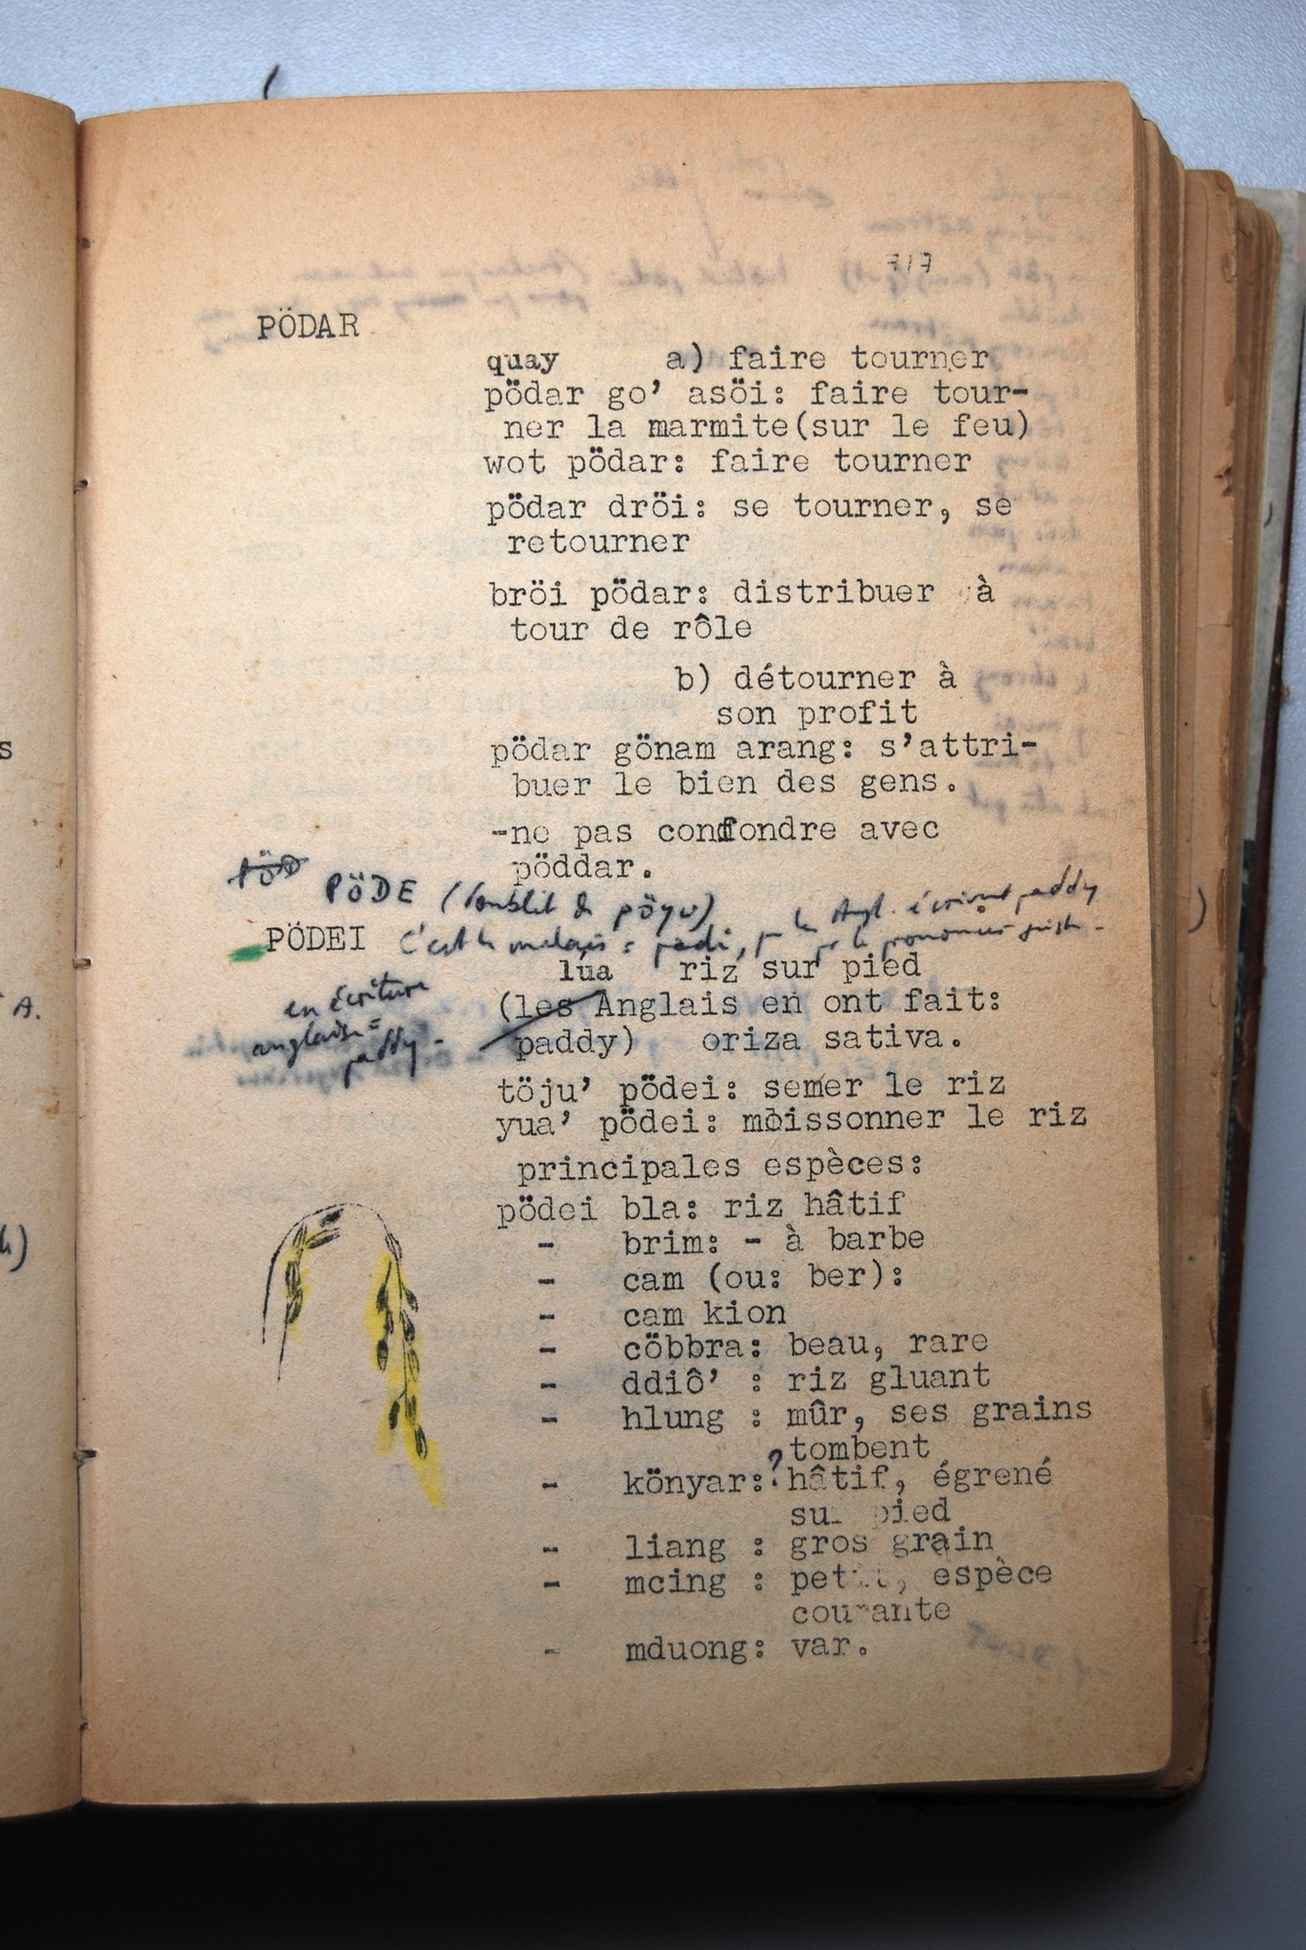 717
PÖDAR
quay a) faire tourner
pödar go' asöi: faire tour-
ner la marmite(sur le feu)
wot pödar: faire tourner
pödar dröi: se tourner, se
retourner
bröi pödar: distribuer à
tour de rôle
b) détourner à
son profit
pödar gönam arang: s'attri-
buer le bien des gens.
-ne pas confondre avec
pöddar.
PÖD
PÖDE (doublet de pöyu)
PÖDEI C'est le malais = padi, que les Angl. écrivent paddy
pr le prononcer juste -
lúa riz sur pied
en écriture
anglaise =
paddy -
(les Anglais en ont fait:
paddy) oriza sativa.
töju' pödei: semer le riz
yua' pödei: moissonner le riz
principales espèces:
pödei bla: riz hâtif
- brim: - à barbe
- cam (ou: ber):
- cam kion
- cöbbra: beau, rare
- ddiô' : riz gluant
- hlung : mûr, ses grains
tombent
- könyar:? hâtif, égrené
sur pied
- liang : gros grain
- mcing : petit, espèce
courante
- mduong: var.
s
A.
h)